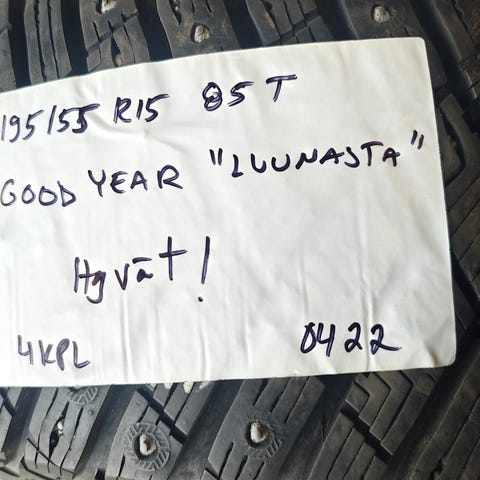 195/55 R15 85T
GOOD YEAR "LUUNASTA"
Hyvät!
4KPL 0422